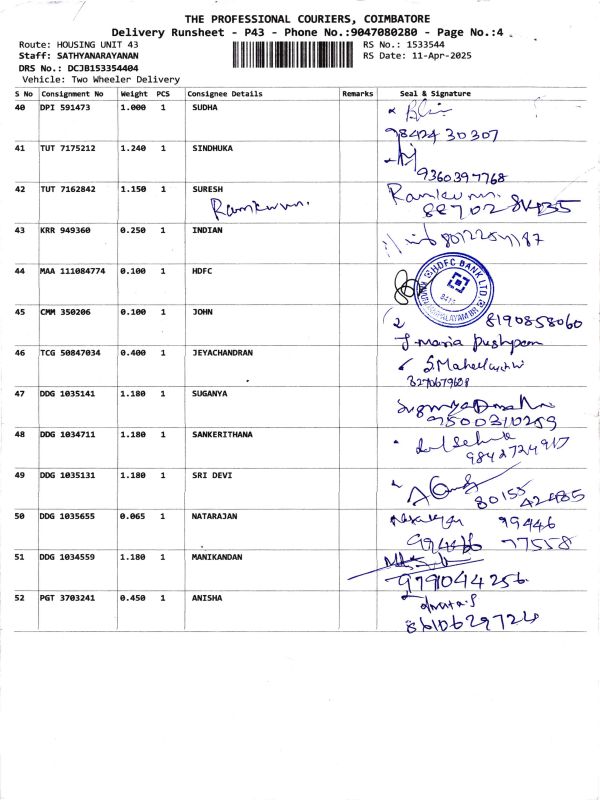 THE PROFESSIONAL COURIERS, COIMBATORE
Delivery Runsheet - P43 - Phone No.:9047080280 - Page No.:4
Route: HOUSING UNIT 43 RS No.: 1533544
Staff: SATHYANARAYANAN RS Date: 11-Apr-2025
DRS No.: DCJB153354404
Vehicle: Two Wheeler Delivery
S No Consignment No Weight PCS Consignee Details Remarks Seal & Signature
40 DPI 591473 1.000 1 SUDHA
98424 30307
41 TUT 7175212 1.240 1 SINDHUKA
9360397768
42 TUT 7162842 1.150 1 SURESH Ramkumar.
Ramkumar.
43 KRR 949360 0.250 1 INDIAN
44 MAA 111084774 0.100 1 HDFC
HDFC BANK LTD
45 CMM 350206 0.100 1 JOHN
8190858060
J. Maria Pushpam
46 TCG 50847034 0.400 1 JEYACHANDRAN
47 DDG 1035141 1.180 1 SUGANYA
9500310259
48 DDG 1034711 1.180 1 SANKERITHANA
9842724917
49 DDG 1035131 1.180 1 SRI DEVI
80155 42485
50 DDG 1035655 0.065 1 NATARAJAN
99446
77558
51 DDG 1034559 1.180 1 MANIKANDAN
9791044256
52 PGT 3703241 0.450 1 ANISHA
8610629724